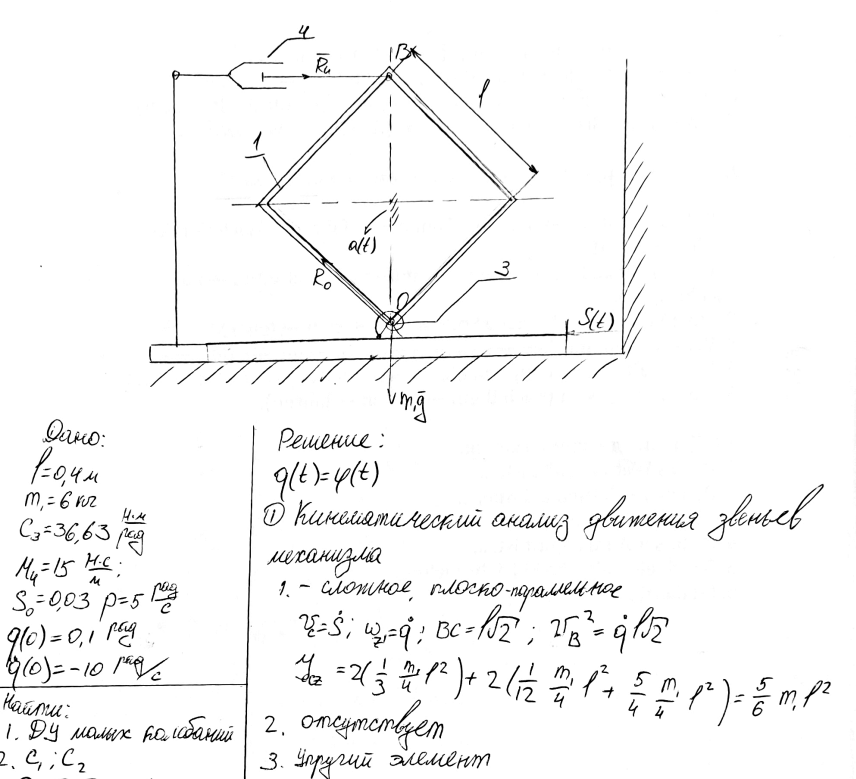 4
B
R̄₄
l
1
a(t)
R₀
O
3
S(t)
m₁ḡ
Дано:
l=0,4 м
m₁=6 кг
C₃=36,63 Н·м/рад
M₄=15 Н·с/м;
S₀=0,03 p=5 рад/с
q(0)=0,1 рад
q̇(0)=-10 рад/с
Найти:
1. ДУ малых колебаний
2. C₁; C₂
Решение:
q(t)=φ(t)
① Кинематический анализ движения звеньев
механизма
1. - сложное, плоско-параллельное
=Ṡ; ω_z₁=q̇; BC=l√2; v_B²=q̇l√2
J_cz=2(1/3 m₁/4 l²)+2(1/12 m₁/4 l²+5/4 m₁/4 l²)=5/6 m₁l²
2. отсутствует
3. Упругий элемент